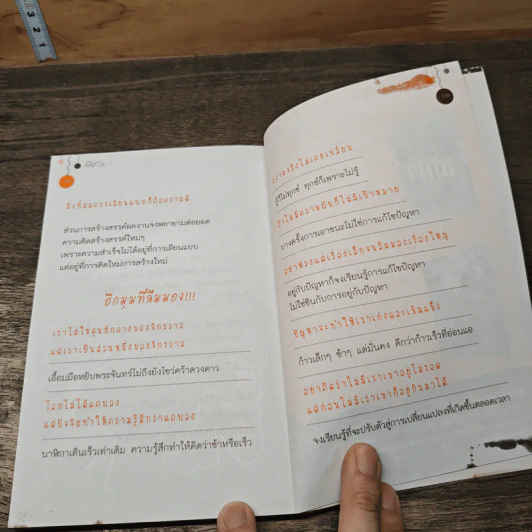 สิ่งที่สมควรเลียนแบบก็คือความดี
ส่วนการสร้างสรรค์ผลงานจงพยายามต่อยอด
ความคิดสร้างสรรค์ใหม่ๆ
เพราะความสำเร็จไม่ได้อยู่ที่การเลียนแบบ
แต่อยู่ที่การคิดใหม่การสร้างใหม่
อีกมุมที่ลืมมอง!!!
เราไม่ใช่ศูนย์กลางของจักรวาล
แต่เราเป็นส่วนหนึ่งของจักรวาล
เอื้อมมือหยิบพระจันทร์ไม่ถึงยังโชว์คว้าดวงดาว
โลกไม่ได้แคบลง
แต่ปัจจัยทำให้ความรู้สึกว่าแคบลง
นาฬิกาเดินเร็วเท่าเดิม ความรู้สึกทำให้คิดว่าช้าหรือเร็ว
ความจริงไม่เคยเปลี่ยน
รู้ก็ไม่ทุกข์ ทุกข์ก็เพราะไม่รู้
ถ้าไม่มีความฝันก็ไม่มีเป้าหมาย
บางครั้งการเอาชนะไม่ใช่การแก้ไขปัญหา
อย่ามองแต่เรื่องเล็กจนลืมมองเรื่องใหญ่
อยู่กับปัญหาก็จงเรียนรู้การแก้ไขปัญหา
ไม่ใช่ชินกับการอยู่กับปัญหา
ปัญหาจะทำให้เราเก่งและเข้มแข็ง
ก้าวเล็กๆ ช้าๆ แต่มั่นคง ดีกว่าก้าวเร็วที่อ่อนแอ
อย่าคิดว่าไม่มีเราเขาอยู่ไม่รอด
แต่ก่อนไม่มีเราเขาก็อยู่กันมาได้
จงเรียนรู้ที่จะปรับตัวสู่การเปลี่ยนแปลงที่เกิดขึ้นตลอดเวลา